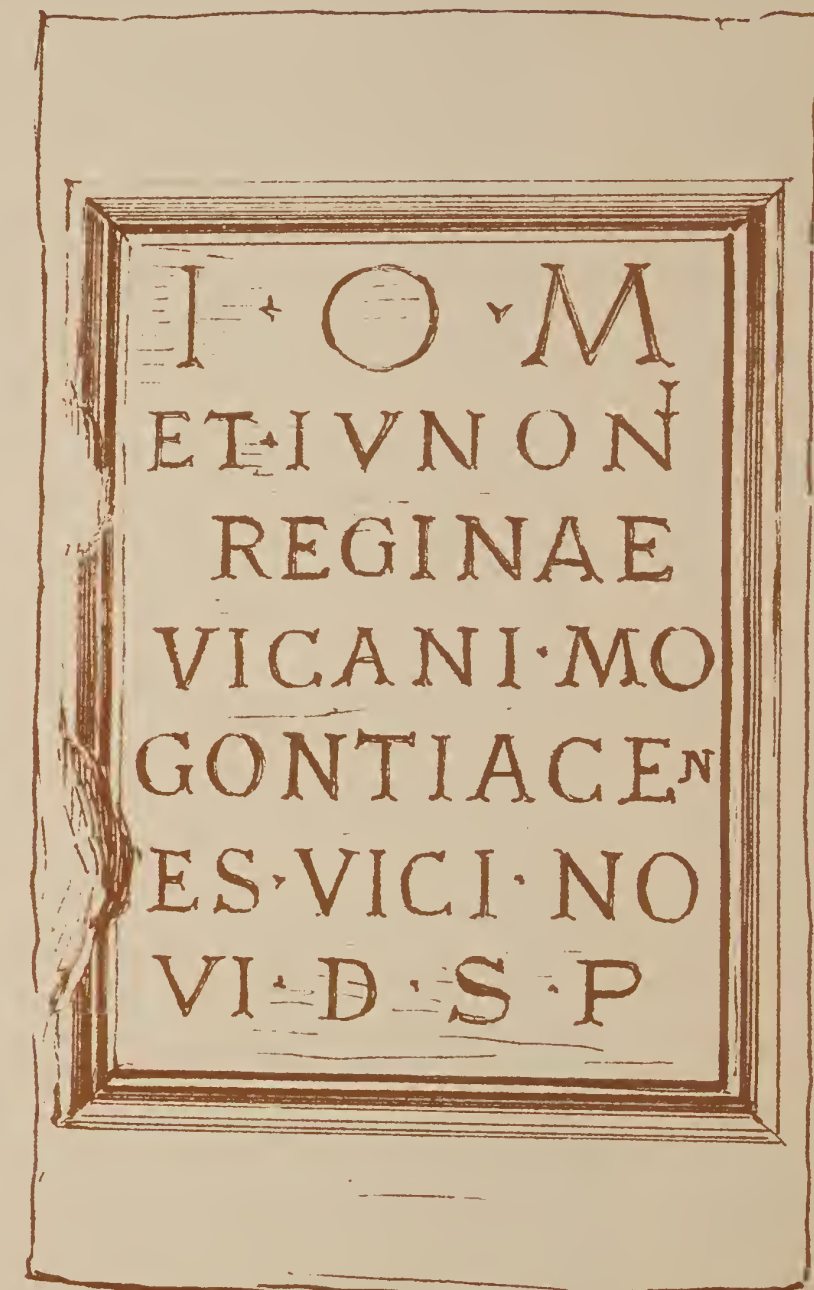 I · O · M
ET · IVNONI
REGINAE
VICANI · MO
GONTIACEN
ES · VICI · NO
VI · D · S · P